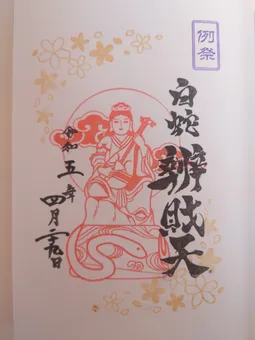 例祭
白蛇辨財天
令和五年
四月二十九日